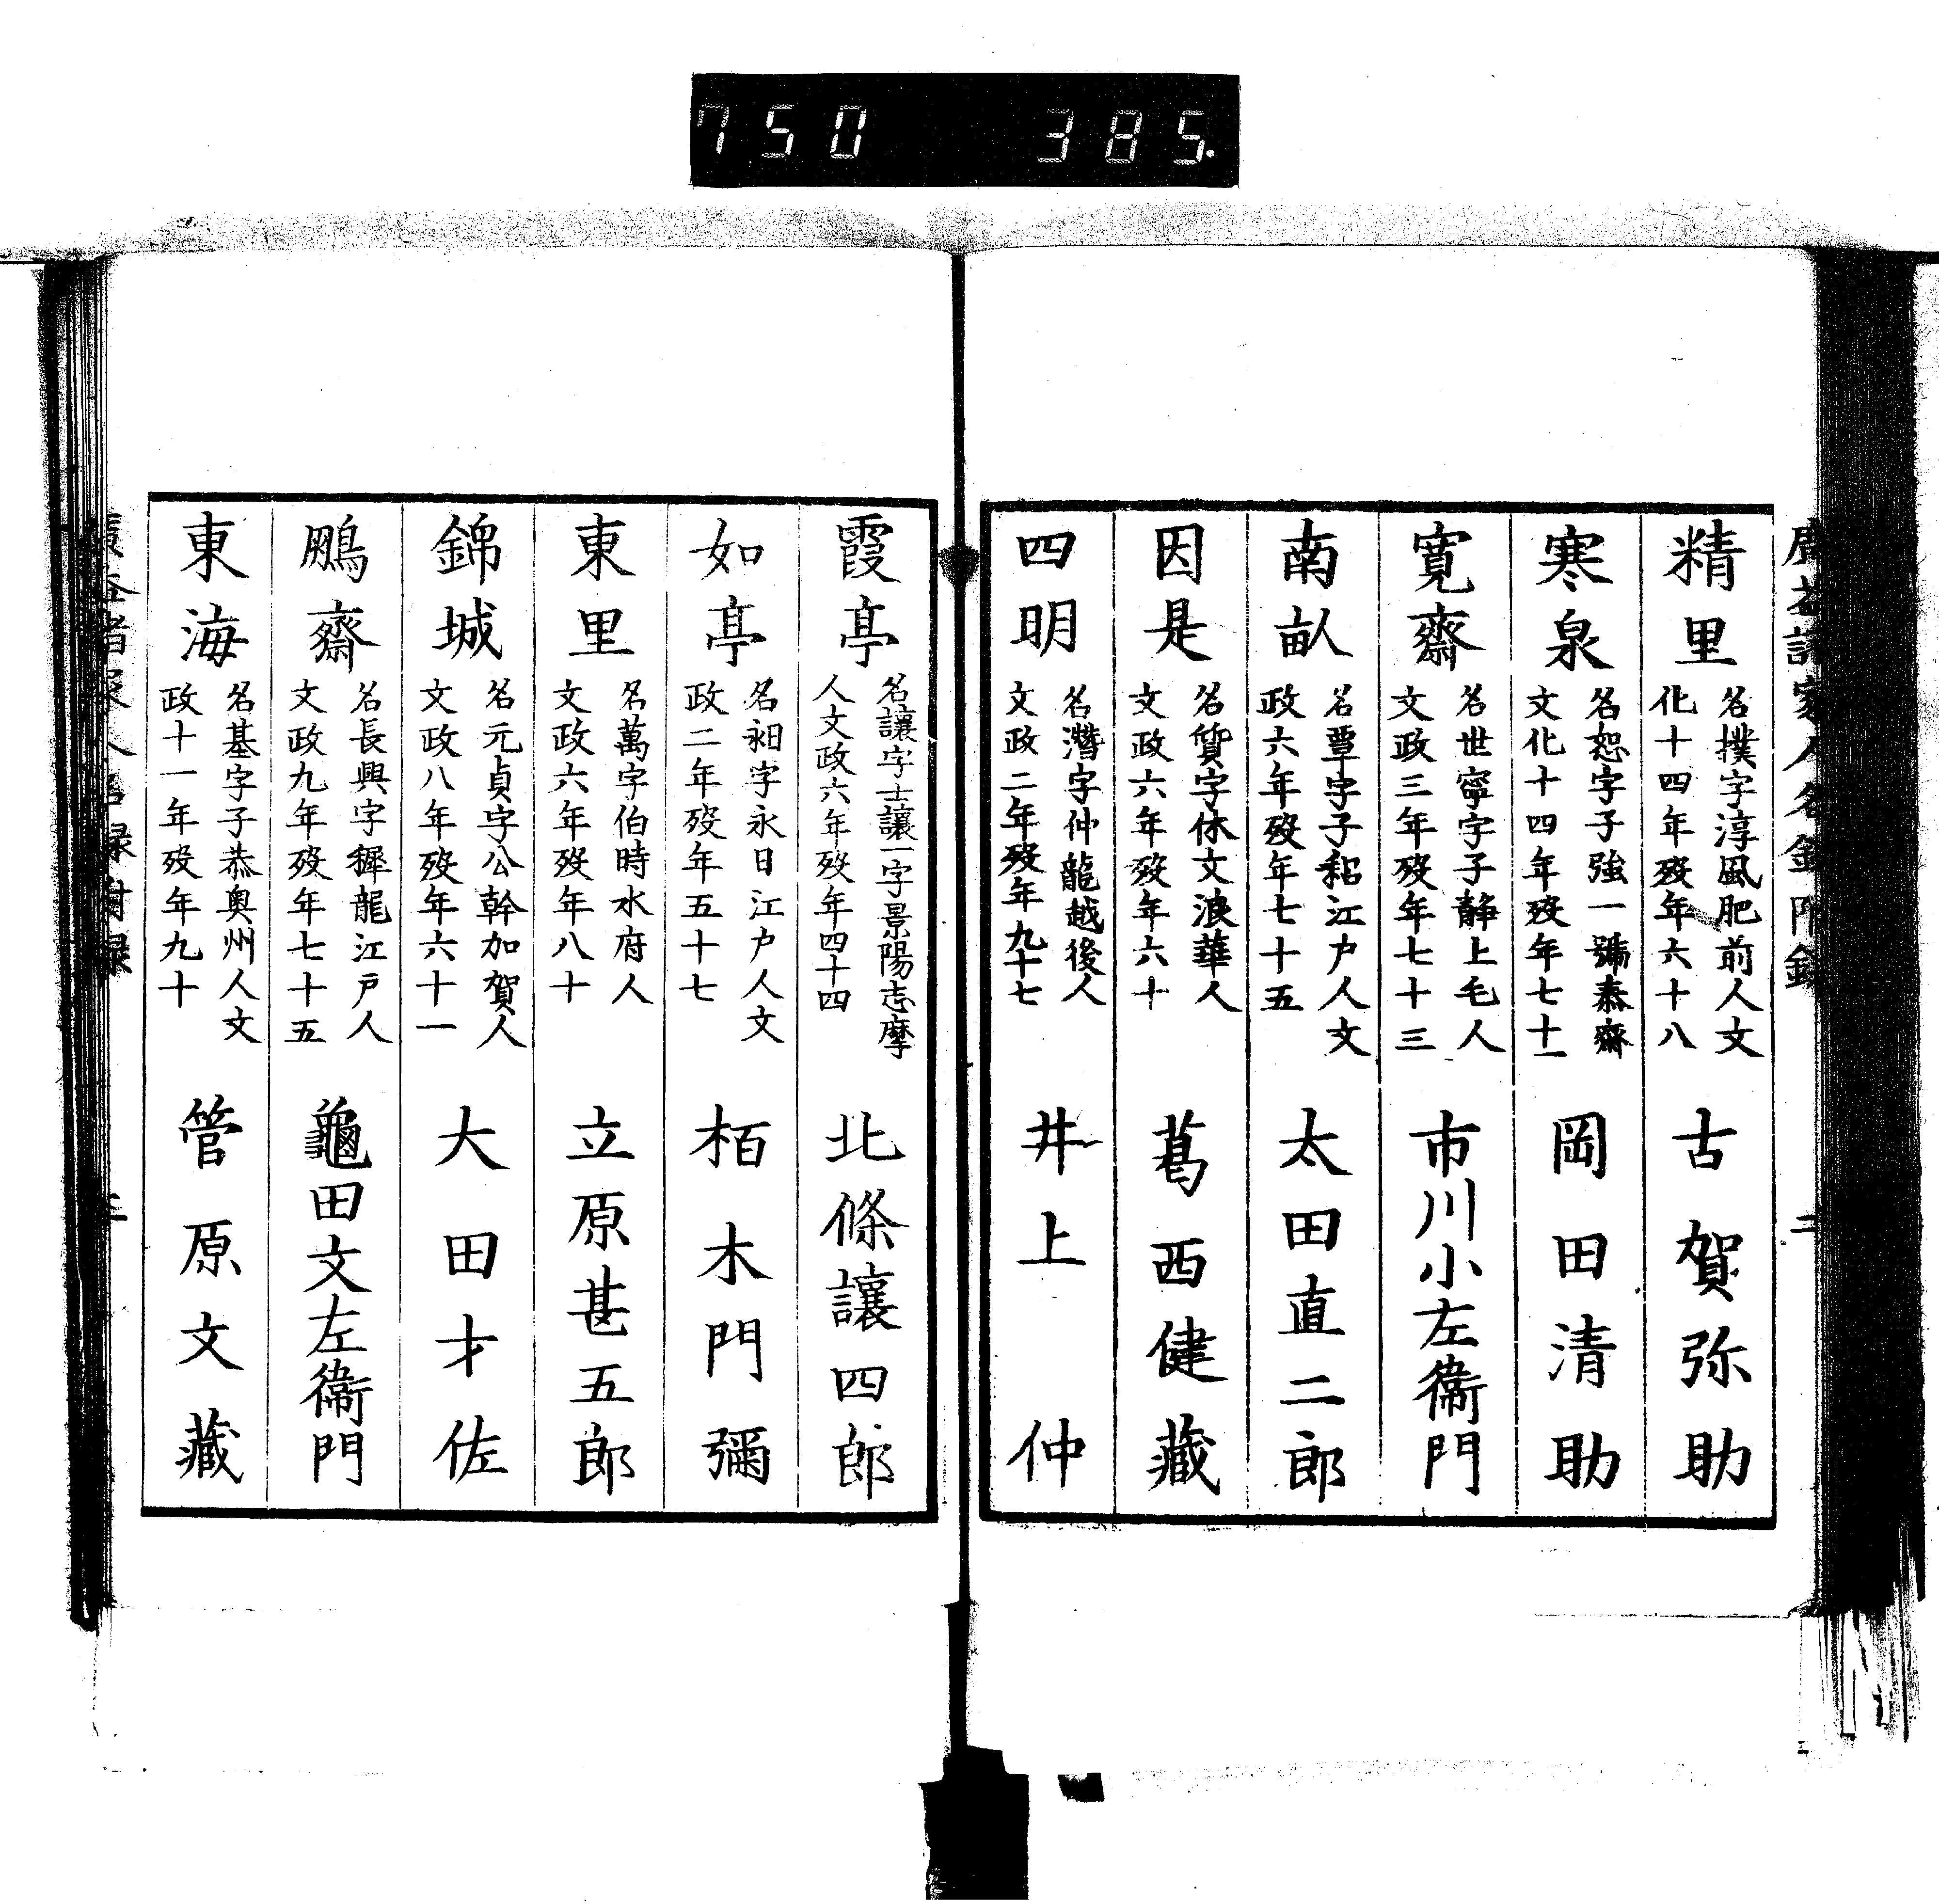 750 385.
精里 名撲字淳風肥前人文化十四年歿年六十八 古賀弥助
寒泉 名恕字子強一號泰齋文化十四年歿年七十一 岡田清助
寛齋 名世寧字子静上毛人文政三年歿年七十三 市川小左衞門
南畝 名覃字子耜江戸人文政六年歿年七十五 太田直二郎
因是 名質字休文浪華人文政六年歿年六十 葛西健藏
四明 名濳字仲龍越後人文政二年歿年九十七 井上仲
霞亭 名讓字士讓一字景陽志摩人文政六年歿年四十四 北條讓四郎
如亭 名昶字永日江戸人文政二年歿年五十七 栢木門彌
東里 名萬字伯時水府人文政六年歿年八十 立原甚五郎
錦城 名元貞字公幹加賀人文政八年歿年六十一 大田才佐
鵬齋 名長興字穉龍江戸人文政九年歿年七十五 龜田文左衞門
東海 名基字子恭奥州人文政十一年歿年九十 菅原文藏